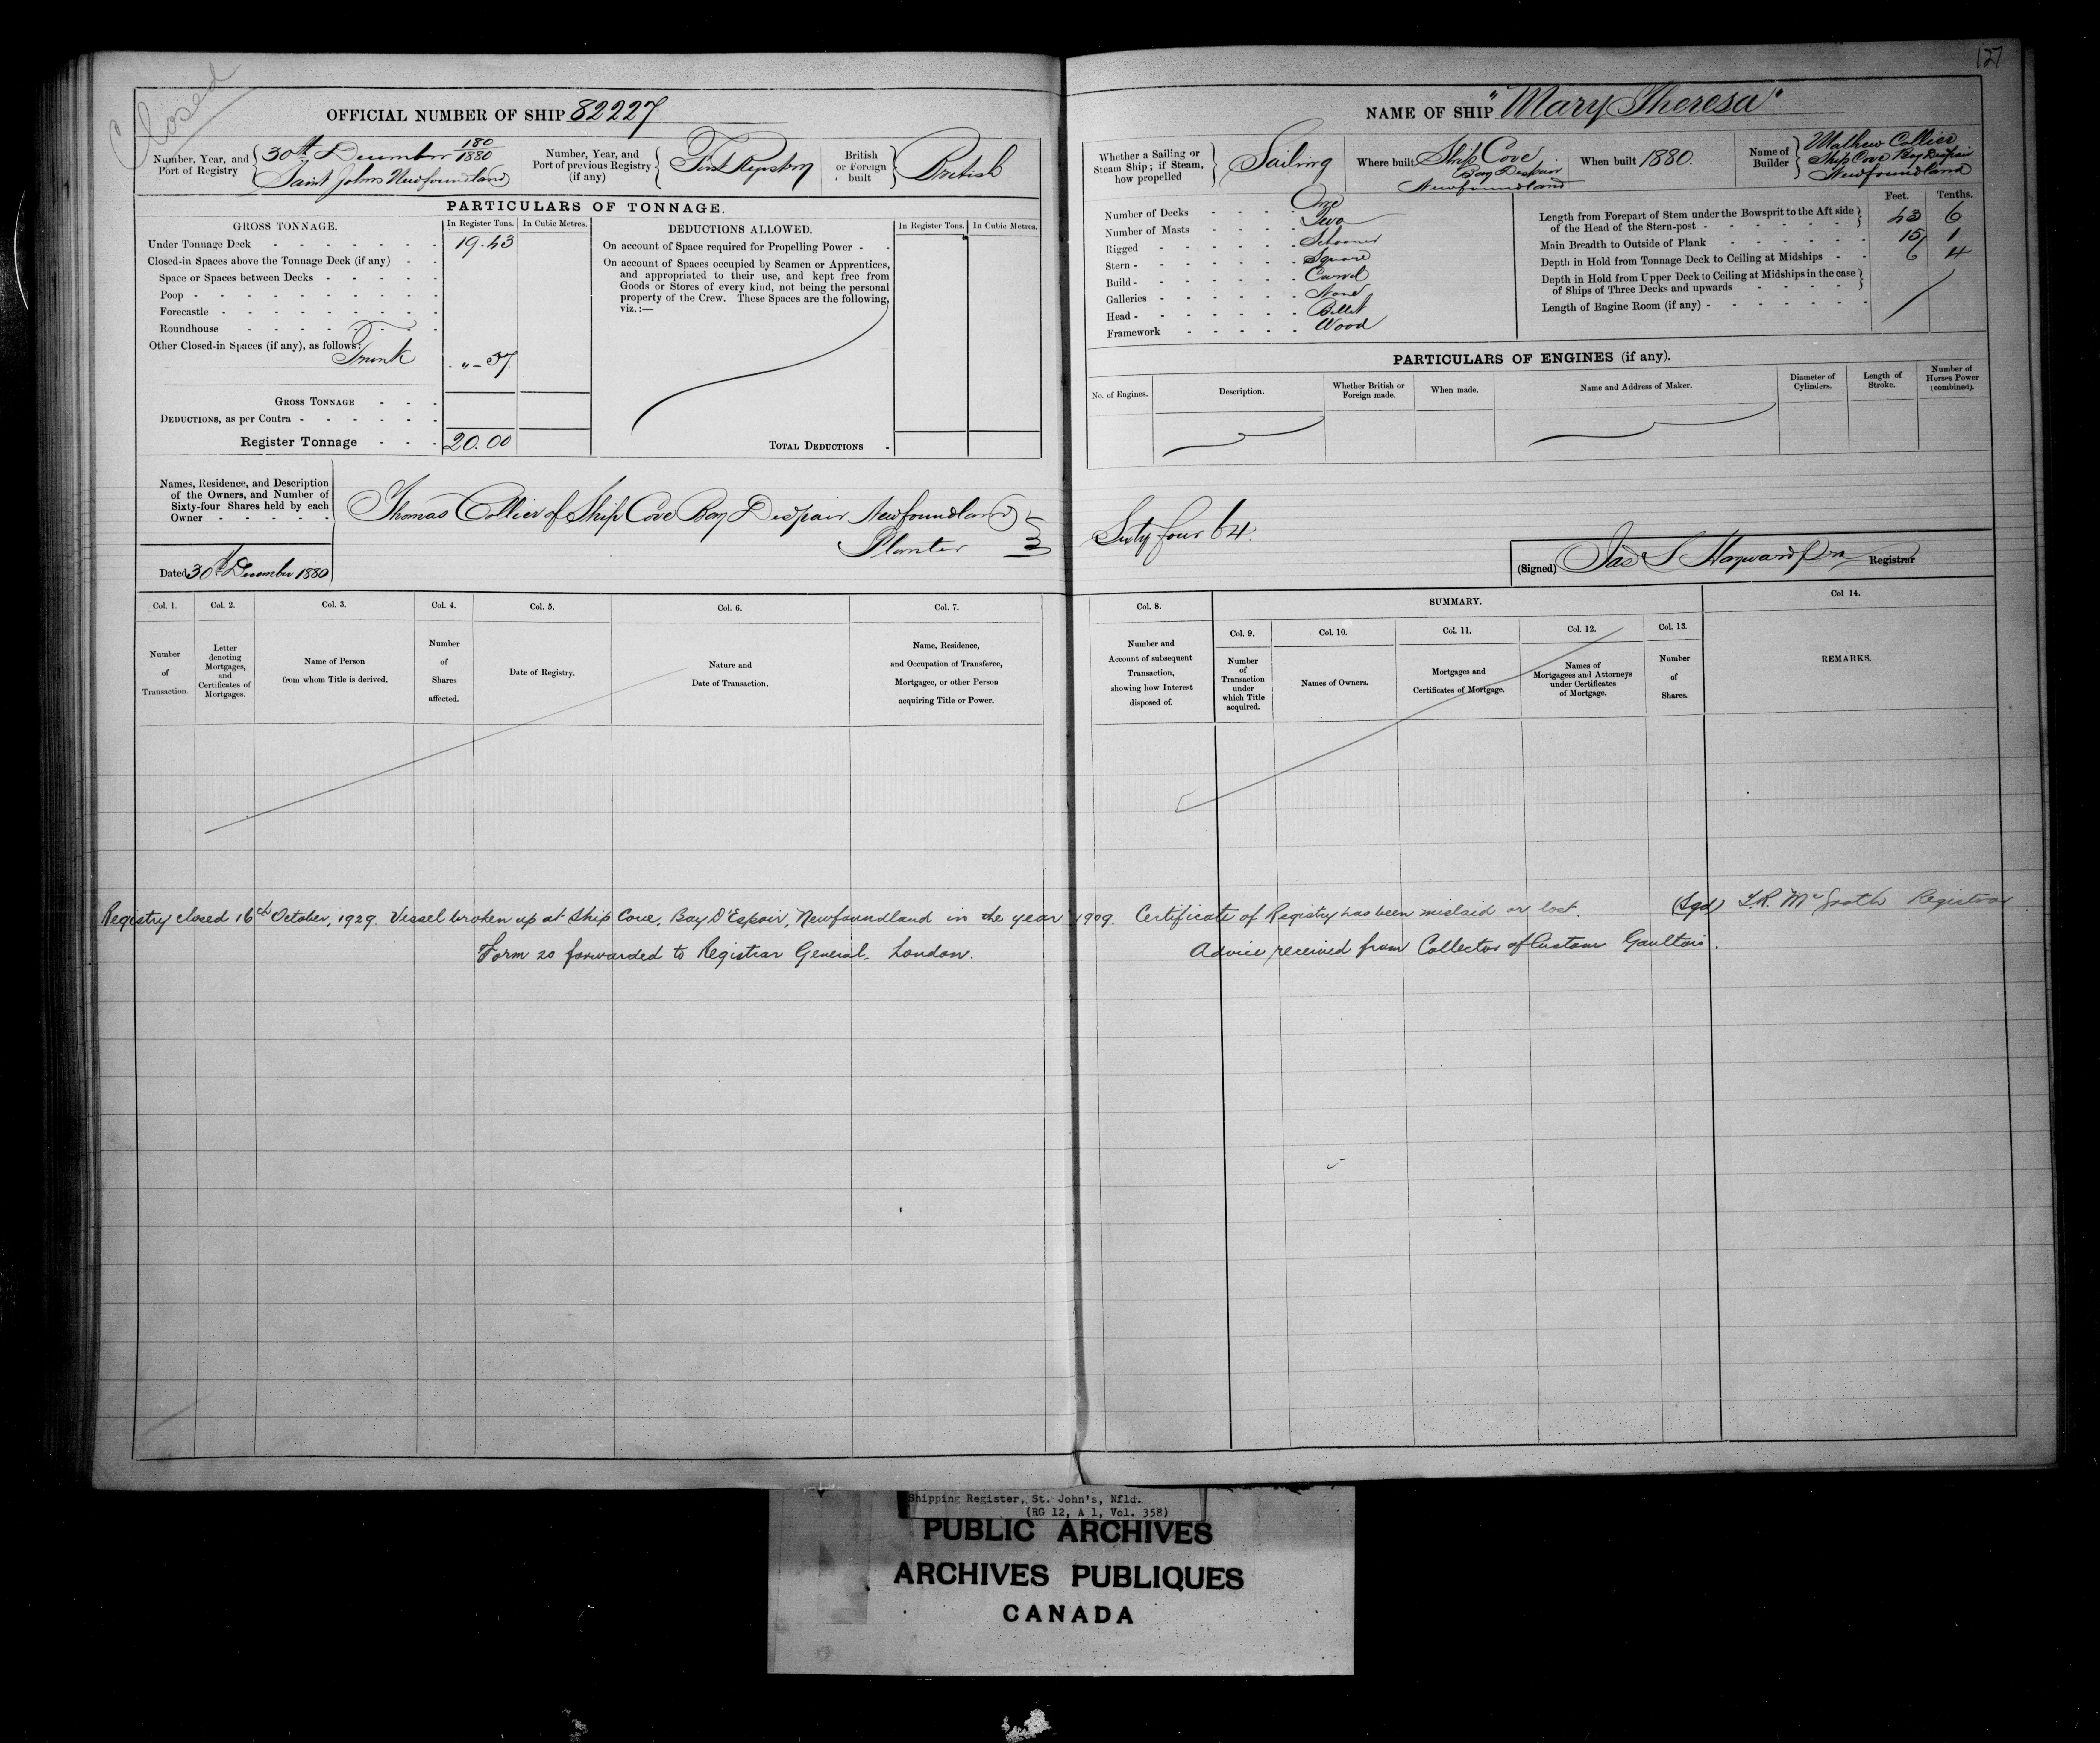 Closed
127
OFFICIAL NUMBER OF SHIP 82227
Number, Year, and Port of Registry { 30th December 180/1880
Saint Johns Newfoundland
Number, Year, and Port of previous Registry (if any) { First Registry
British or Foreign built } British
PARTICULARS OF TONNAGE.
GROSS TONNAGE. In Register Tons. In Cubic Metres.
Under Tonnage Deck - - - 19.43
Closed-in Spaces above the Tonnage Deck (if any) - -
Space or Spaces between Decks - - -
Poop - - -
Forecastle - - -
Roundhouse - - -
Other Closed-in Spaces (if any), as follows:
Trunk " - 57
GROSS TONNAGE - - -
DEDUCTIONS, as per Contra - - -
Register Tonnage - - - 20.00
DEDUCTIONS ALLOWED. In Register Tons. In Cubic Metres.
On account of Space required for Propelling Power - -
On account of Spaces occupied by Seamen or Apprentices,
and appropriated to their use, and kept free from
Goods or Stores of every kind, not being the personal
property of the Crew. These Spaces are the following,
viz.:—
TOTAL DEDUCTIONS -
Names, Residence, and Description
of the Owners, and Number of
Sixty-four Shares held by each
Owner - - - - -
Thomas Collier of Ship Cove Bay Despair Newfoundland
Planter
Dated 30th December 1880
NAME OF SHIP "Mary Theresa"
Whether a Sailing or Steam Ship; if Steam, how propelled } Sailing
Where built Ship Cove
Bay Despair
Newfoundland
When built 1880.
Name of Builder { Mathew Collier
Ship Cove Bay Despair
Newfoundland
Number of Decks - - - One
Number of Masts - - - Two
Rigged - - - Schooner
Stern - - - Square
Build - - - Carvel
Galleries - - - None
Head - - - Billet
Framework - - - Wood
Feet. Tenths.
Length from Forepart of Stem under the Bowsprit to the Aft side
of the Head of the Stern-post - - - } 43 6
Main Breadth to Outside of Plank - - - 15 1
Depth in Hold from Tonnage Deck to Ceiling at Midships - - 6 4
Depth in Hold from Upper Deck to Ceiling at Midships in the case
of Ships of Three Decks and upwards - - - }
Length of Engine Room (if any) - - -
PARTICULARS OF ENGINES (if any).
No. of Engines. Description. Whether British or Foreign made. When made. Name and Address of Maker. Diameter of Cylinders. Length of Stroke. Number of Horses Power (combined).
Sixty four 64.
(Signed) Jas S Hayward Registrar
Col. 1. Col. 2. Col. 3. Col. 4. Col. 5. Col. 6. Col. 7.
Number of Transaction.
Letter denoting Mortgages, and Certificates of Mortgages.
Name of Person from whom Title is derived.
Number of Shares affected.
Date of Registry.
Nature and Date of Transaction.
Name, Residence, and Occupation of Transferee, Mortgagee, or other Person acquiring Title or Power.
Col. 8. SUMMARY. Col 14.
Col. 9. Col. 10. Col. 11. Col. 12. Col. 13.
Number and Account of subsequent Transaction, showing how Interest disposed of.
Number of Transaction under which Title acquired.
Names of Owners.
Mortgages and Certificates of Mortgage.
Names of Mortgagees and Attorneys under Certificates of Mortgage.
Number of Shares.
REMARKS.
Registry closed 16th October, 1929. Vessel broken up at Ship Cove, Bay D'Espoir, Newfoundland in the year 1909. Certificate of Registry has been mislaid or lost. (Sgd) T.R. McGrath Registrar
Form 20 forwarded to Registrar General, London. Advice received from Collector of Customs Gaultois.
Shipping Register, St. John's, Nfld.
(RG 12, A 1, Vol. 358)
PUBLIC ARCHIVES
ARCHIVES PUBLIQUES
CANADA